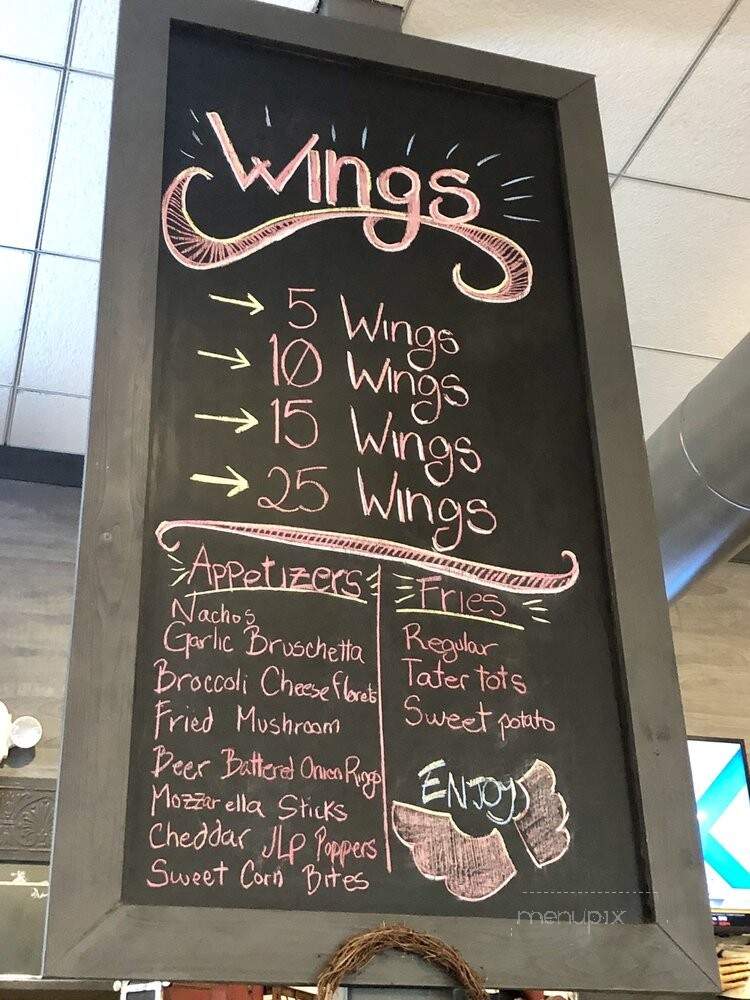 Wings
5 Wings
10 Wings
15 Wings
25 Wings
Appetizers
Nachos
Garlic Bruschetta
Broccoli Cheese florets
Fried Mushroom
Beer Battered Onion Rings
Mozzarella Sticks
Cheddar JLP Poppers
Sweet Corn Bites
Fries
Regular
Tater tots
Sweet potato
ENJOY
menupix